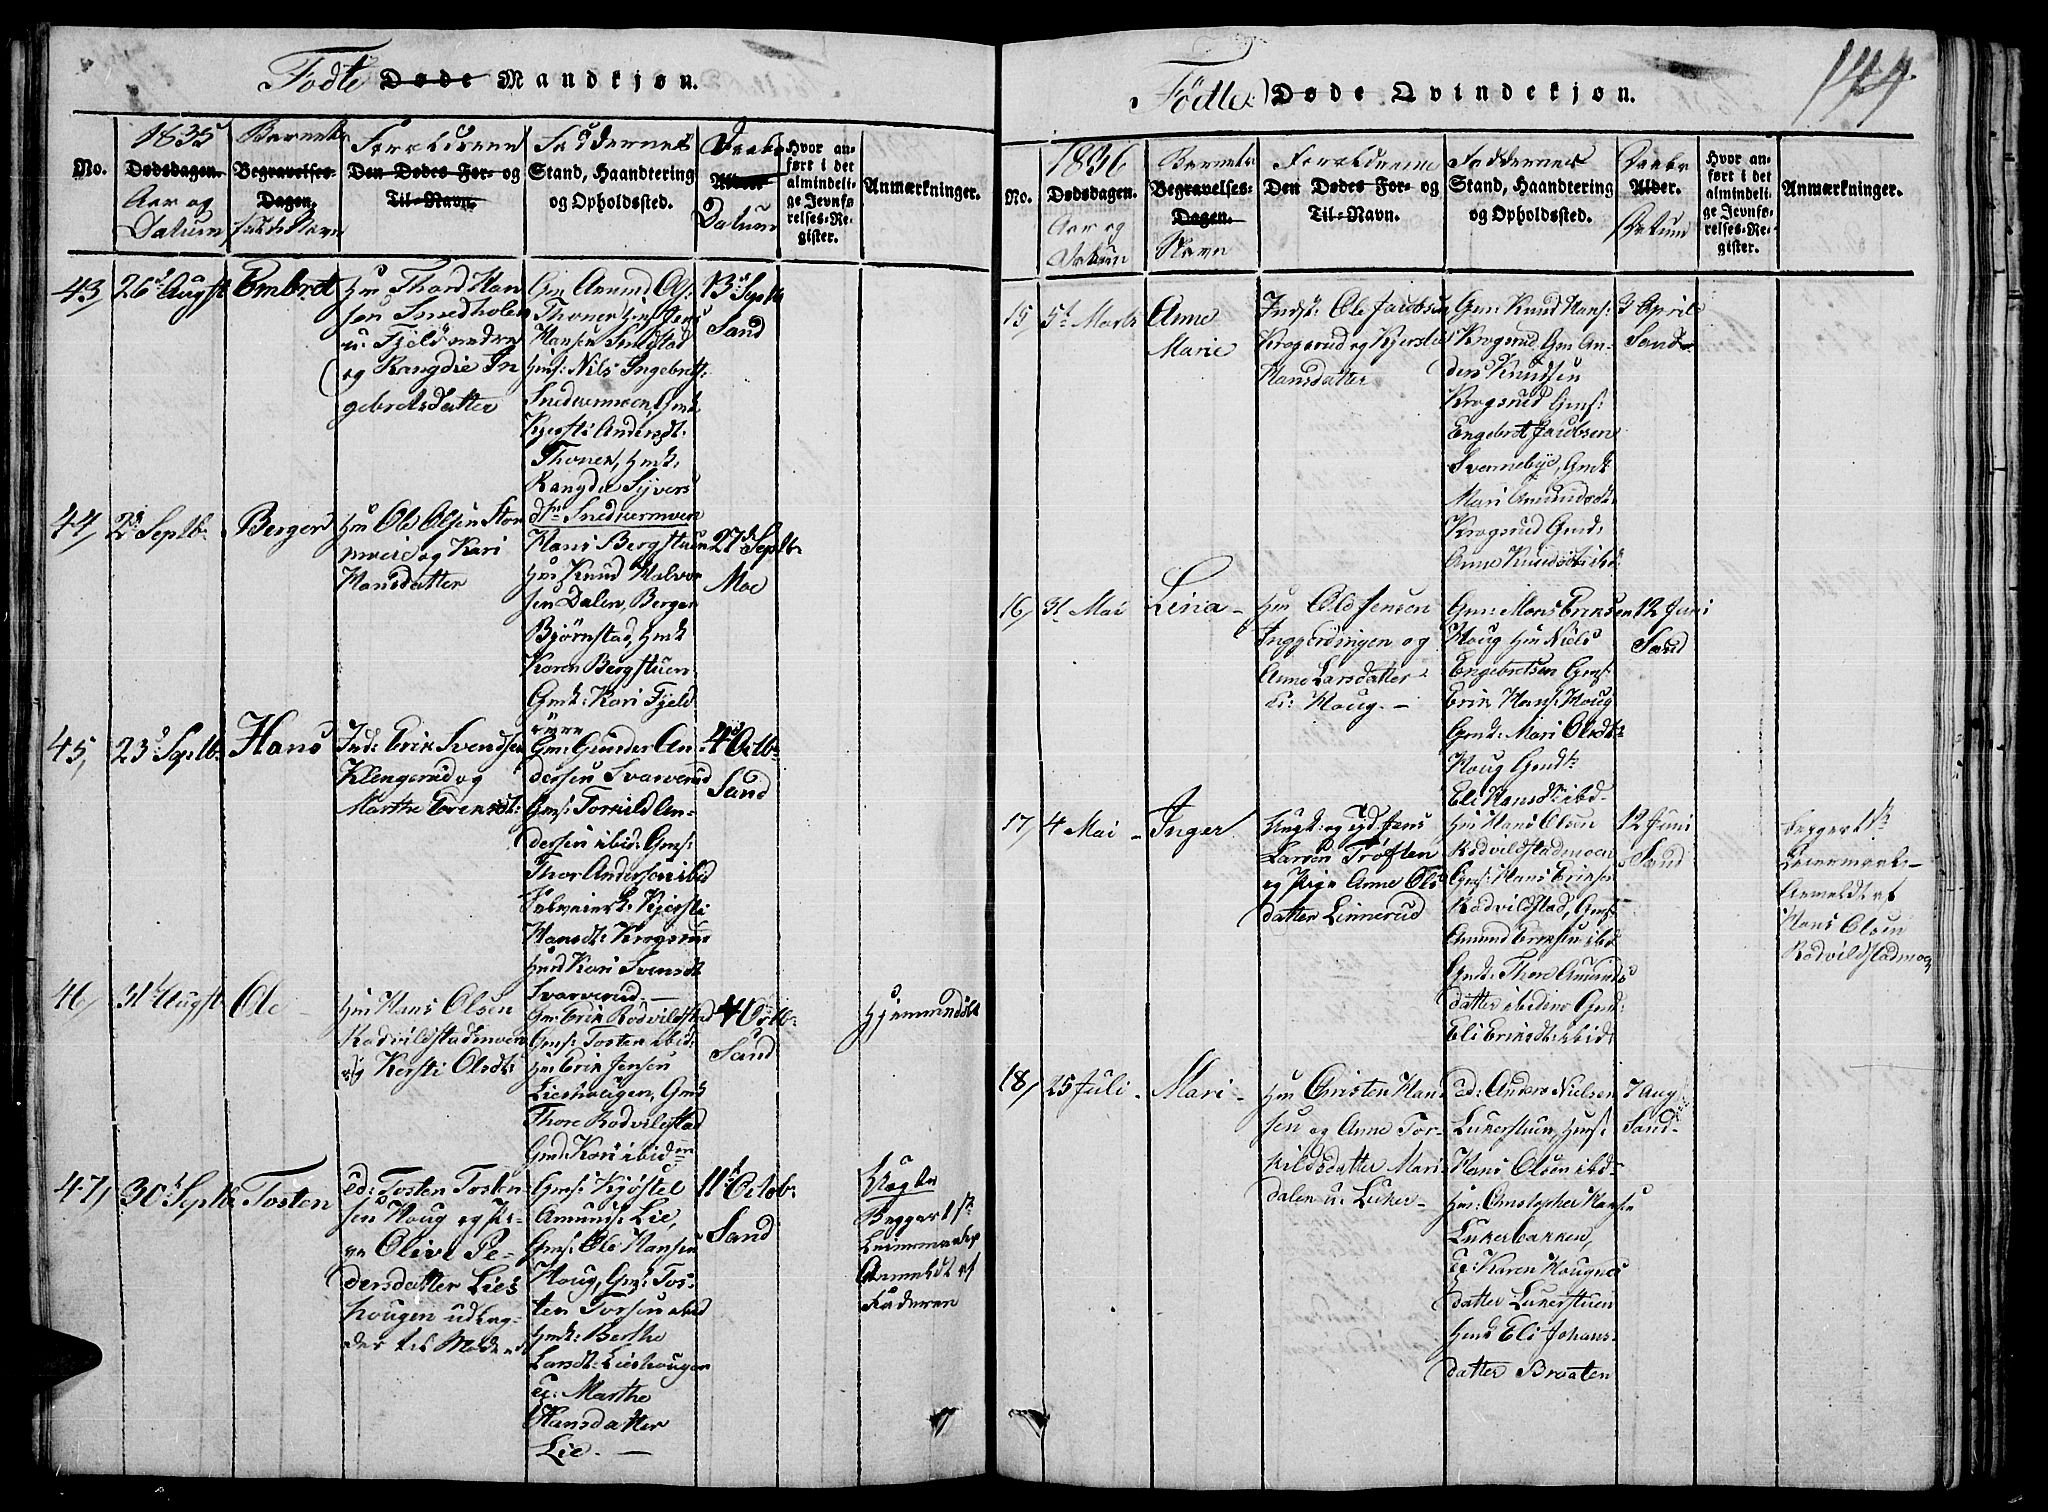 Fødte Døde Mandkjøn.
No.
1835
Dødsdagen.
Aar og
Datum
Barnets
Begravelses-
Dagen.
fulde Navn
Forældrenes
Den Dødes For- og
Til-Navn.
Faddernes
Stand, Haandtering
og Opholdssted.
Daabs
Alder
Datum
Hvor an-
ført i det
almindeli-
ge Jevnfø-
relses-Re-
gister.
Anmærkninger.
43, 26d Augst Embret
Hm Thord Han
sen Smedholen
u: Fjeldsændre
og Rangdie In
gebretsdatter
Gm Amund A:
Thonen Hms
Hansen Snedstad
Hmf: Nils Ingebrets:
Snedvermoen, Gmk
Kjersti Andersdt:
Thonen, Hmk:
Rangdie Syvers
dtr Snedvermoen
13d Septb
Sand
44, 2d Septb. Berger
Hm Ole Olsen Hon
meie og Kari
Hansdatter
Hans Bergstuen
Hm Knud Halvor
sen Dalen, Berger
Bjørnstad, Hmk
Karen Bergstuen
Gmk: Kari Fjeld
27d Septb.
Moe
45, 23d Septb. Hans
Ind: Erik Svendsen
Klengerud og
Marthe Eriksdt:
Gm: Gunder An-
dersen Svarverud
Gms: Torkild An-
dersen ibid: Gms:
Thor Andersen ibid
Kjersti
Hansdt: Krogsrud
Hmd Kari Svensdt
Svarverud. —
4d Octb.
Sand
46, 31d Augst Ole -
Hm Hans Olsen
Rodvildstadmoen
og Kersti Olsdt:
Gm: Erik Rodvildstad
Gms: Tosten ibid:
Hm Erik Jensen
Lieshougen, Gmk
Thore Rodvildstad
Gmd Kari ibidm
4 Octb.
Sand
Hjemmedøbt
47, 30d Septb. Tosten
Ed: Tosten Tosten-
sen Houg og Pi-
ge Olive Pe-
dersdatter Lies
hougen udlag-
der til Moderen
Gms: Kjøstel
Amunds: Lie,
Gms: Ole Hansen
Houg, Gmk: Tos-
ten Torsen ibid
Hmk: Berthe
Larsdt: Lieshougen
E: Marthe
Hansdatter
Lie. —
11d Octob.
Sand
Uægte
Begges 1ste
Leiermaal
Anmeldt af
Faderen
144.
Fødte Døde Qvindekjøn.
No.
1836
Dødsdagen.
Aar og
Datum
Barnets
Begravelses-
Dagen.
Navn
Forældrene
Den Dødes For- og
Til-Navn.
Faddernes
Stand, Haandtering
og Opholdssted.
Daabs
Alder.
Datum
Hvor an-
ført i det
almindeli-
ge Jevnfø-
relses-Re-
gister.
Anmærkninger.
15, 5d Marts Anne
Marie
Indst: Ole Jacobsen
Krogsrud og Kjersti
Hansdatter
Gm: Knud Hans:
Krogsrud, Gm An-
ders Knudsen
Krogsrud Gms:
Engebret Jacobsen
Svennebye, Gmk
Mari Amundsdt:
Krogsrud Gmd:
Anne Knudsdt: ibid:
3 April
Sand
16, 31 Mai Lina -
Hm Ole Jensen
Inggerdingen og
Anne Larsdatter
E: Houg. -
Gm: Mons Eriksen
Houg Hm Niels
Engebretsen Gms:
Erik Hans: Houg
Gmd: Mari Olsdtr
Houg Gmdtr
Eli Hansdtr ibd-
12 Juni
Sand
17, 4 Mai - Inger
Ungk: og Jens
Larsen Trøften
og Pige Anne Ols
datter Linnerud
Hm Hans Olsen
Rodvildstadmoen
Gms: Hans Eriksen
Rodvildstad, Gms:
Amund Eriksen ibid
Gmd: Thore Amunds
datter ibidem Gmd:
Eli Eriksdt: ibid:
12 Juni
Sand
Begges 1ste
Leiermaal-
Anmeldt af
Hans Olsen
Rodvildstadmoen
18, 25 Juli - Mari -
Hm Christen Han
sen og Anne Tor-
kildsdatter Mari-
dalen u: Luker-
Ed: Anders Nielsen
Lukerstuen, Hms:
Hans Olsen ibd-
Hm: Christopher Hansen
Lukerbakken,
E: Karen Hougnes
datter Lukerstuen
Hmd Eli Johans-
datter Braaten
7 Aug
Sand-